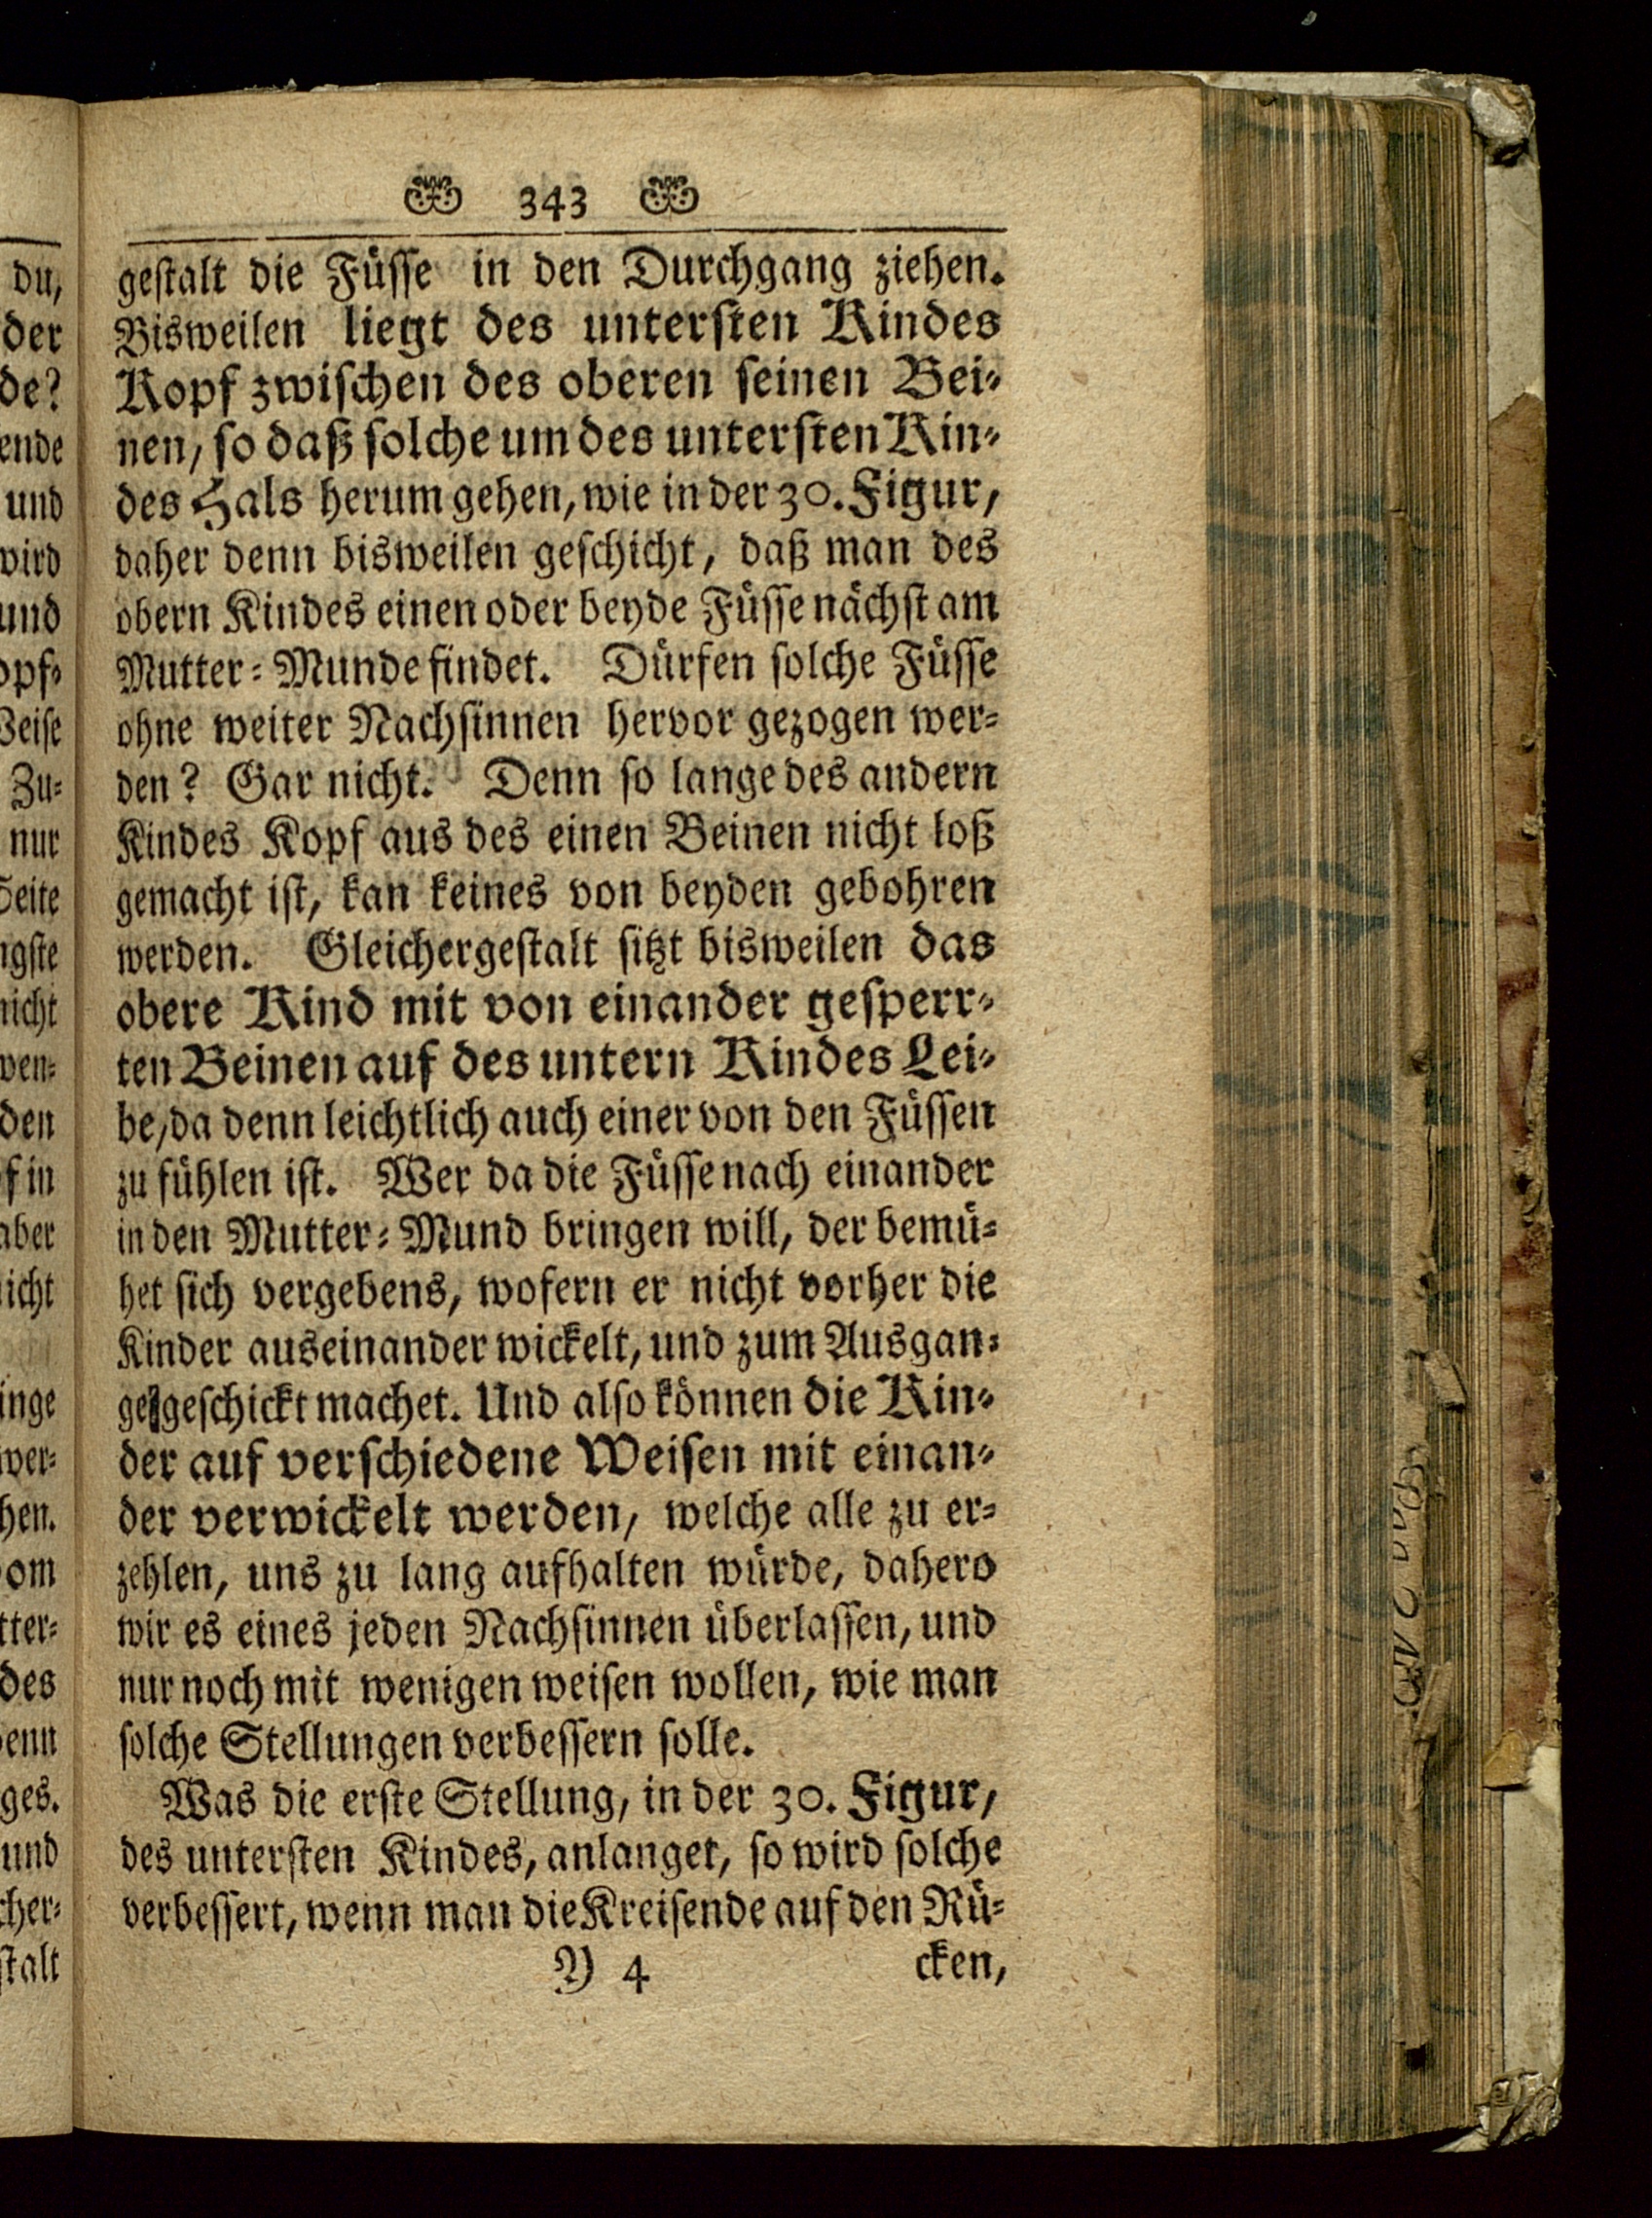 343
gestalt die Füsse in den Durchgang ziehen.
Bisweilen liegt des untersten Kindes
Kopf zwischen des oberen seinen Bei-
nen, so daß solche um des untersten Kin-
des Hals herum gehen, wie in der 30. Figur,
daher denn bisweilen geschicht, daß man des
obern Kindes einen oder beyde Füsse nächst am
Mutter-Munde findet. Dürfen solche Füsse
ohne weiter Nachsinnen hervor gezogen wer-
den? Gar nicht. Denn so lange des andern
Kindes Kopf aus des einen Beinen nicht loß
gemacht ist, kan keines von beyden gebohren
werden. Gleichergestalt sitzt bisweilen das
obere Kind mit von einander gesperr-
ten Beinen auf des untern Kindes Lei-
be, da denn leichtlich auch einer von den Füssen
zu fühlen ist. Wer da die Füsse nach einander
in den Mutter-Mund bringen will, der bemü-
het sich vergebens, wofern er nicht vorher die
Kinder auseinander wickelt, und zum Ausgan-
ge geschickt machet. Und also können die Kin-
der auf verschiedene Weisen mit einan-
der verwickelt werden, welche alle zu er-
zehlen, uns zu lang aufhalten würde, dahero
wir es eines jeden Nachsinnen überlassen, und
nur noch mit wenigen weisen wollen, wie man
solche Stellungen verbessern solle.
Was die erste Stellung, in der 30. Figur,
des untersten Kindes, anlanget, so wird solche
verbessert, wenn man die Kreisende auf den Rü-
Y 4 cken,
du,
der
de?
ende
und
wird
und
opf-
Weise
Zu-
nur
Seite
ngste
nicht
wen-
den
f in
aber
icht
inge
wer-
hen.
vom
tter-
des
enn
ges.
und
cher-
stalt